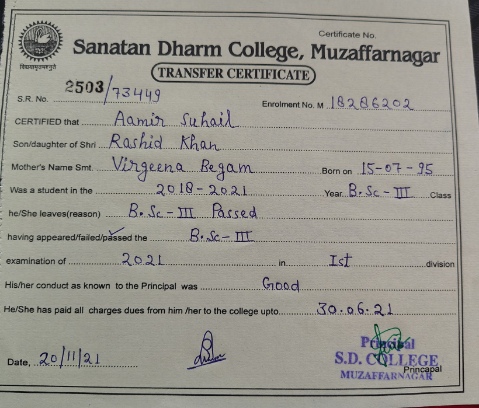 Certificate No.
Sanatan Dharm College, Muzaffarnagar
TRANSFER CERTIFICATE
S.R. No. 2503/73449 Enrolment No. M 18286202
CERTIFIED that Aamir Suhail
Son/daughter of Shri Rashid Khan
Mother's Name Smt. Virgeena Begam Born on 15-07-95
Was a student in the 2018-2021 Year B.Sc-III Class
he/She leaves(reason) B.Sc-III Passed
having appeared/failed/passed the B.Sc-III
examination of 2021 in Ist division
His/her conduct as known to the Principal was Good
He/She has paid all charges dues from him /her to the college upto 30.06.21
Date, 20/11/21
Principal
S.D. COLLEGE
MUZAFFARNAGAR
Princapal